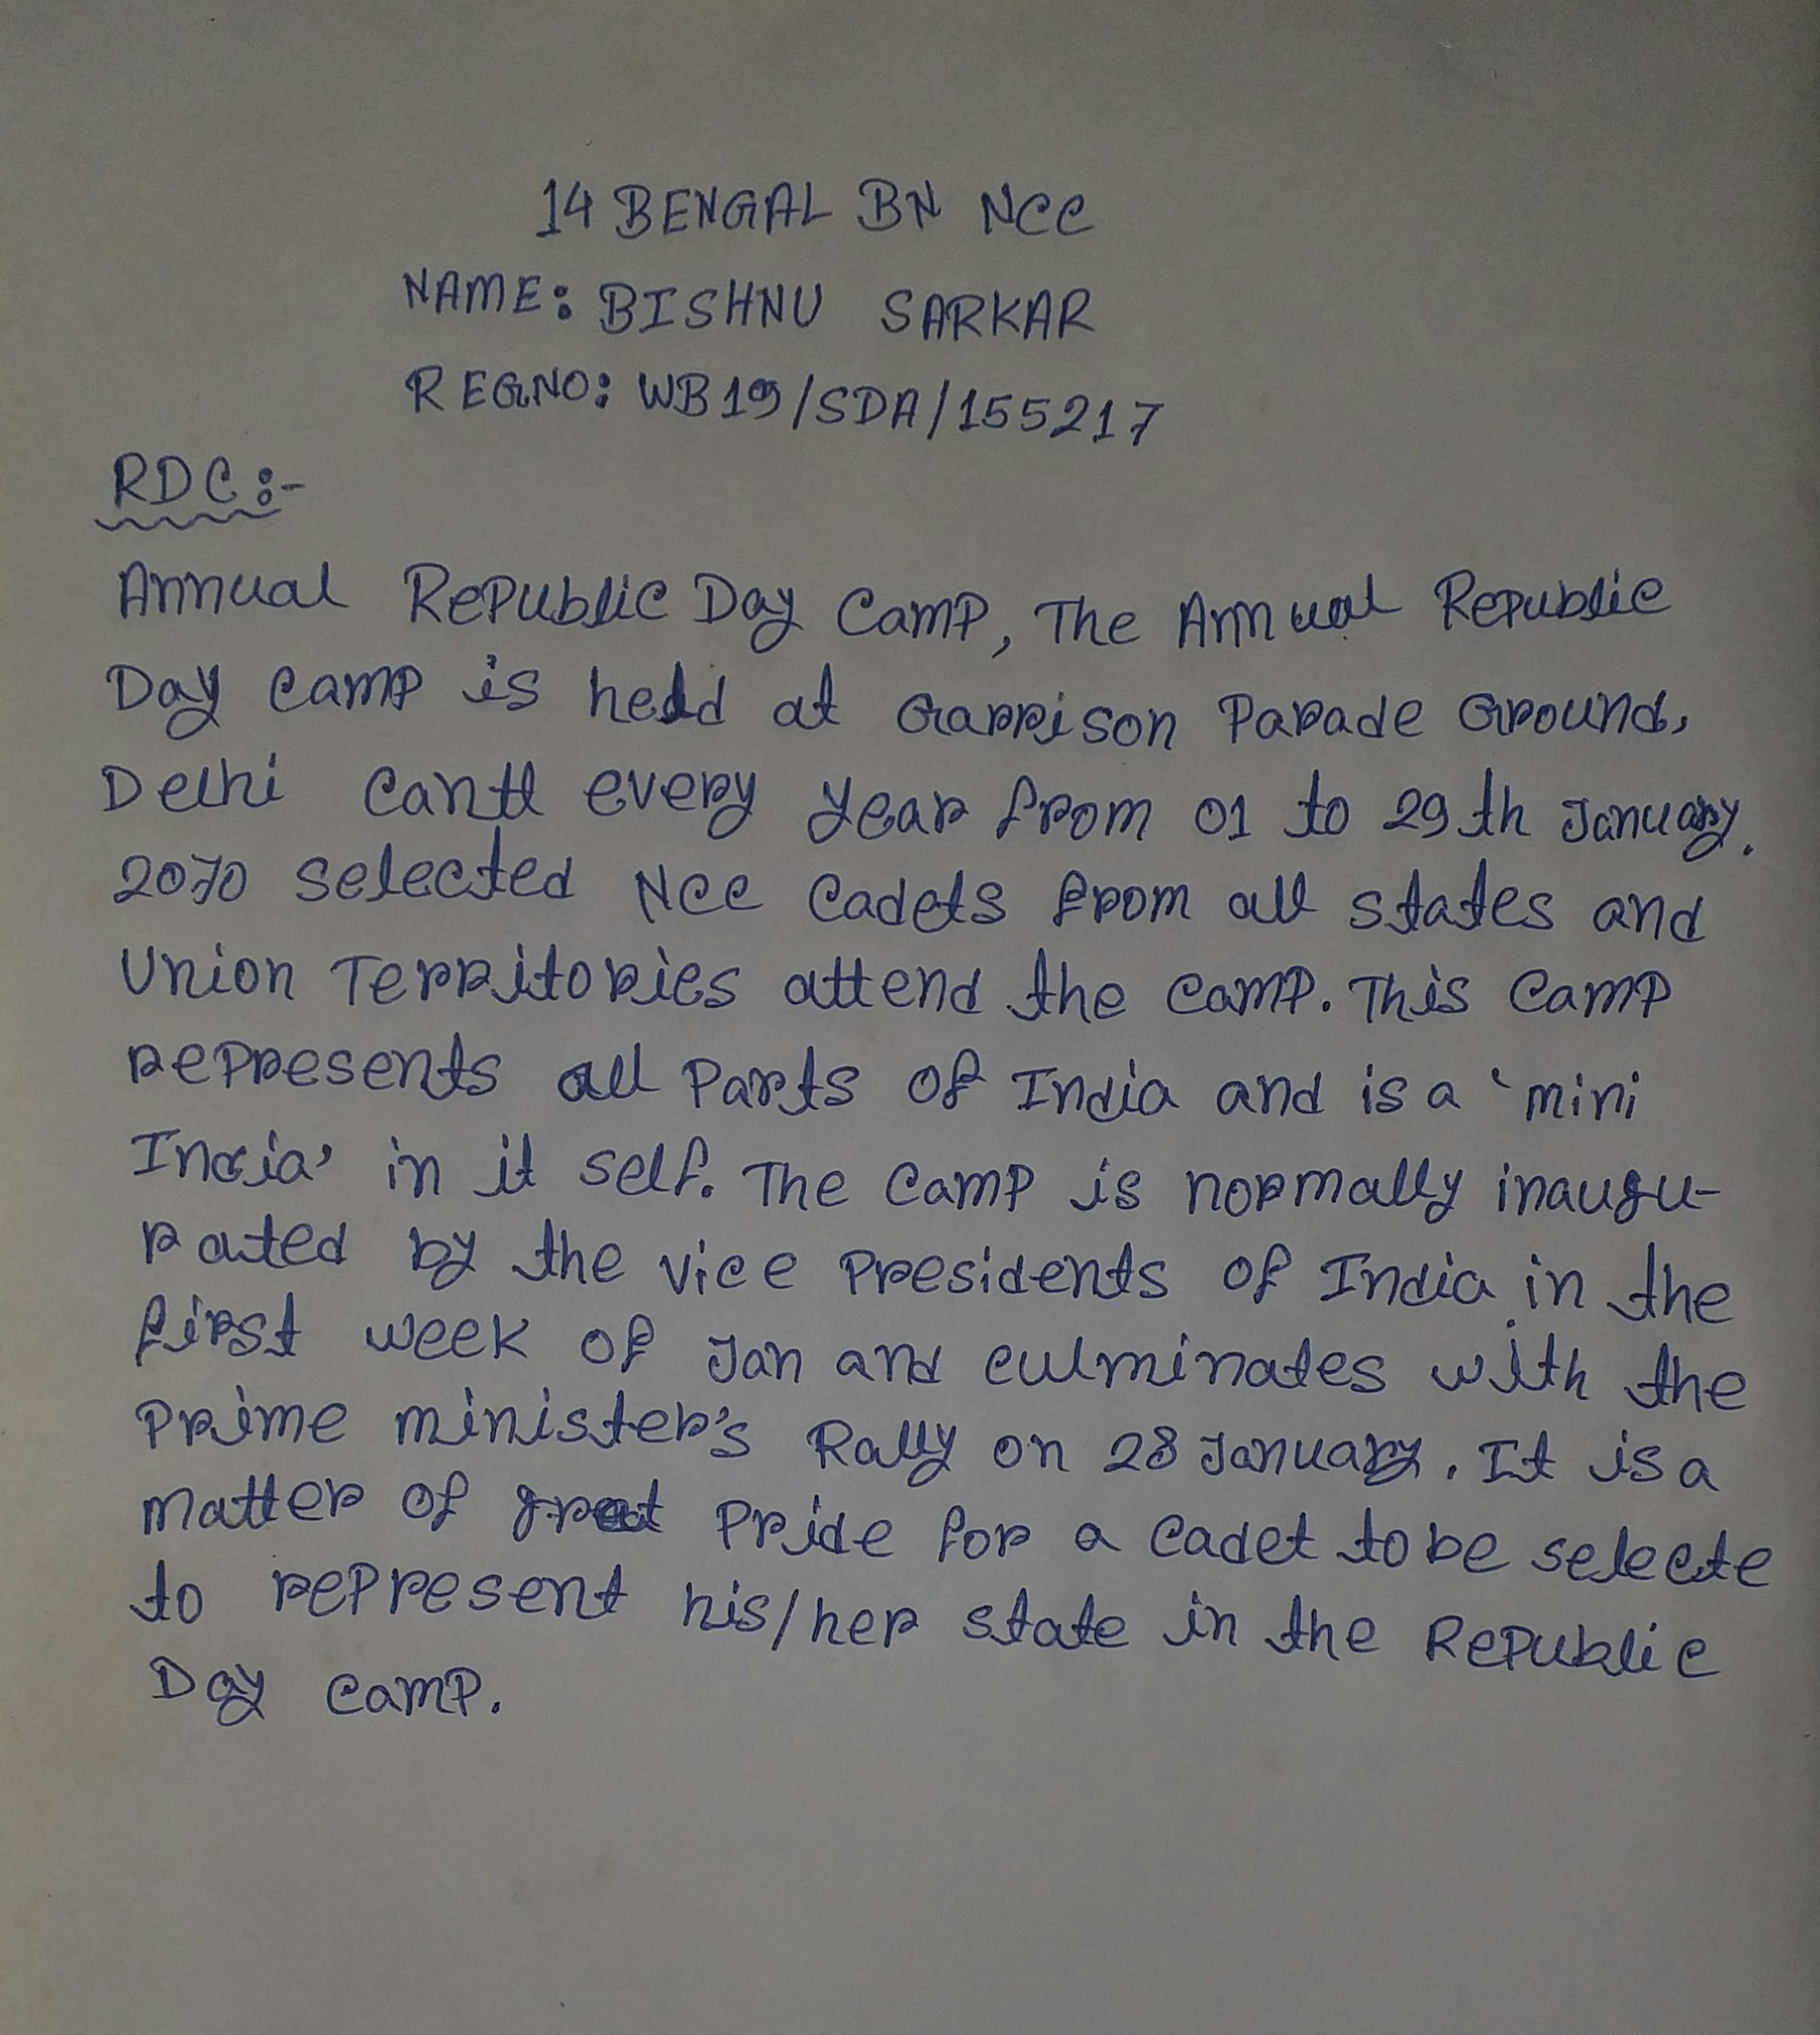 14 BENGAL BN NCC
NAME: BISHNU SARKAR
REGNO: WB19/SDA/155217
RDC:-
Annual Republic Day Camp, The Annual Republic
Day camp is held at Garrison Parade Ground,
Delhi Cantt every year from 01 to 29th January.
2070 selected NCC Cadets from all states and
Union Territories attend the camp. This camp
represents all parts of India and is a 'mini
India' in it self. The camp is normally inaugu-
rated by the vice presidents of India in the
first week of Jan and culminates with the
Prime minister's Rally on 28 January. It is a
matter of great pride for a cadet to be selecte
to represent his/her state in the Republic
Day camp.